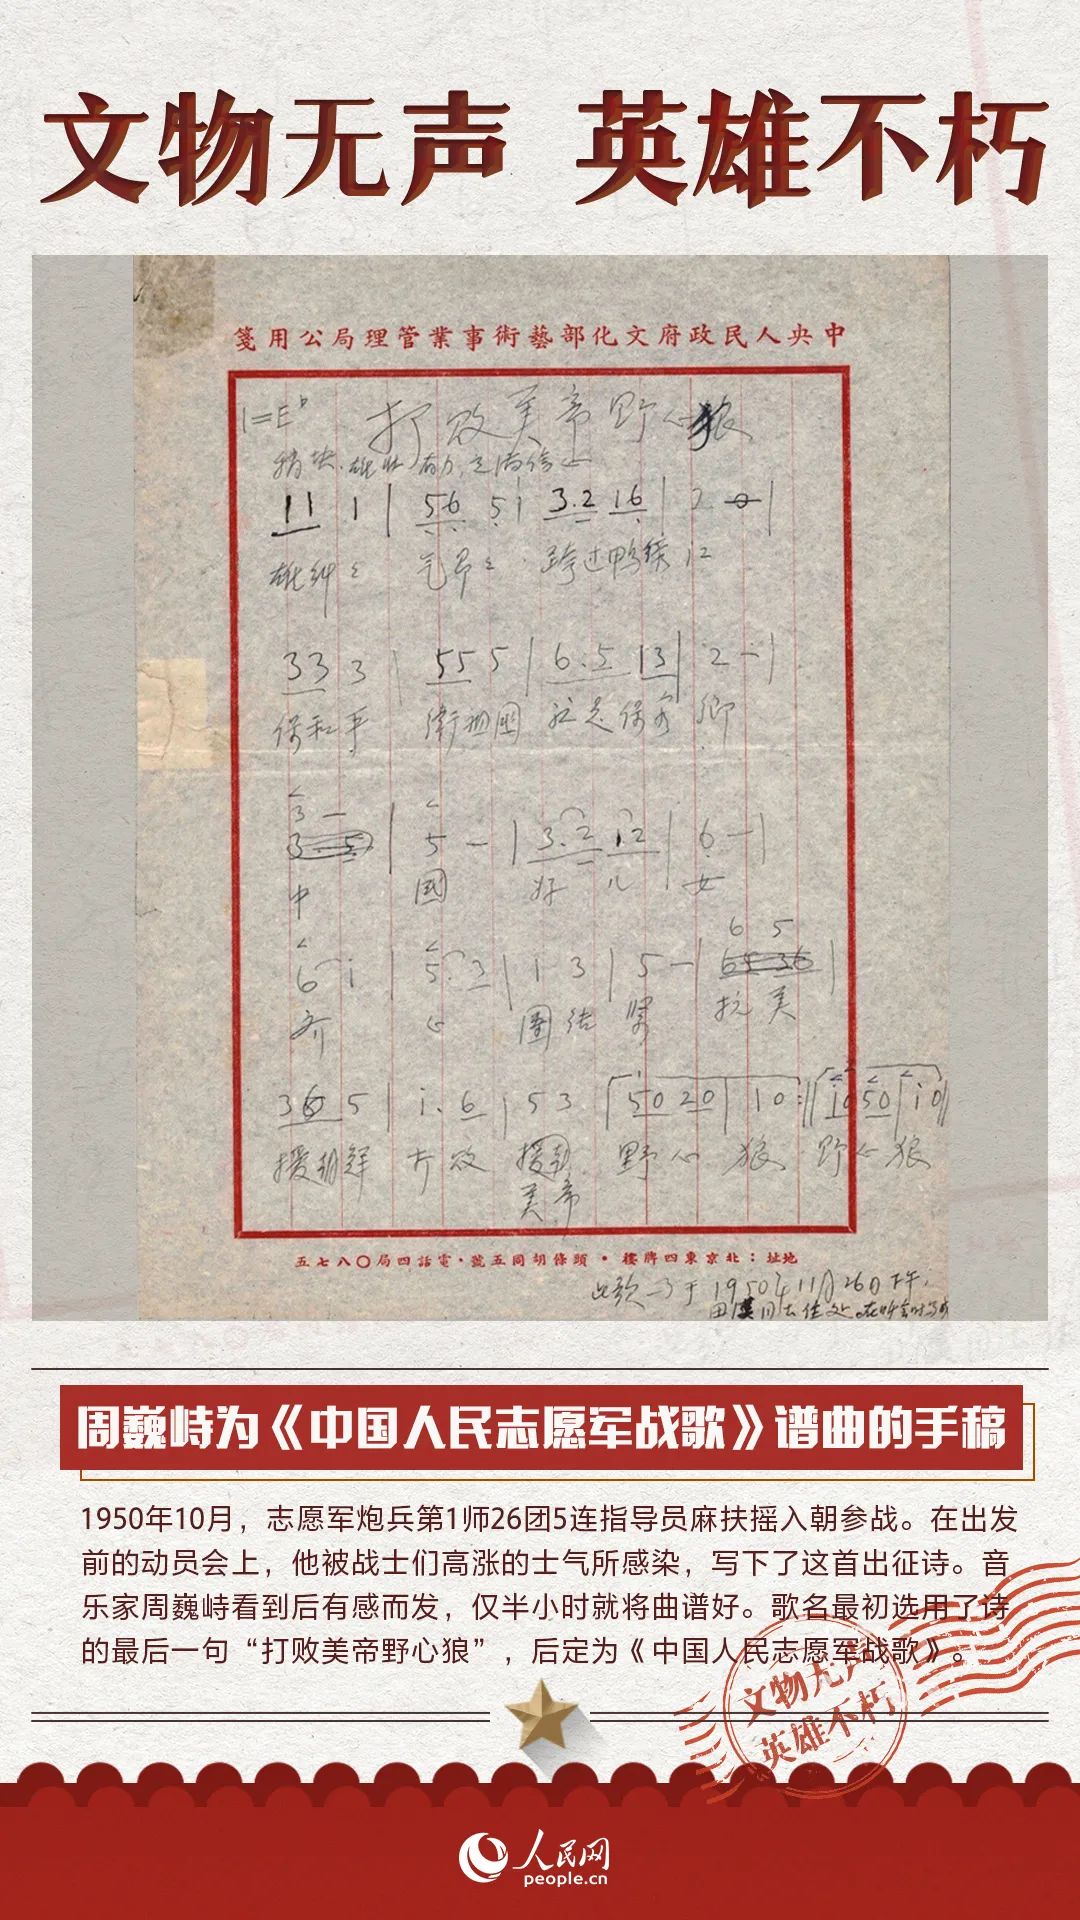 文物无声 英雄不朽
中央人民政府文化部藝術事業管理局公用箋
1=E♭ 打败美帝野心狼
11 1 | 56 5 | 3.2 16 | 2 - |
雄纠纠 气昂昂 跨过鸭绿江
33 3 | 55 5 | 6.5 13 | 2 - |
保和平 衛祖國 就是保家鄉
3 -
3 5 | 5 - | 3.2 12 | 6 - |
中 國 好 儿 女
6 5
6 i | 5.3 | i 3 | 5 - | 65 36 |
齐 心 團结 紧 抗美
36 5 | i.6 | 53 | 50 20 | 10 :|| i0 50 | i0 ||
援朝鲜 打败 野心 狼 野心狼
美帝
地址：北京東四牌樓·頭條胡同五號·電話四局〇八七五
此歌写于1950年11月26日下午，
田漢同志住处。在听会时写成
周巍峙为《中国人民志愿军战歌》谱曲的手稿
1950年10月，志愿军炮兵第1师26团5连指导员麻扶摇入朝参战。在出发
前的动员会上，他被战士们高涨的士气所感染，写下了这首出征诗。音
乐家周巍峙看到后有感而发，仅半小时就将曲谱好。歌名最初选用了诗
的最后一句“打败美帝野心狼”，后定为《中国人民志愿军战歌》。
文物无声
英雄不朽
人民网
people.cn